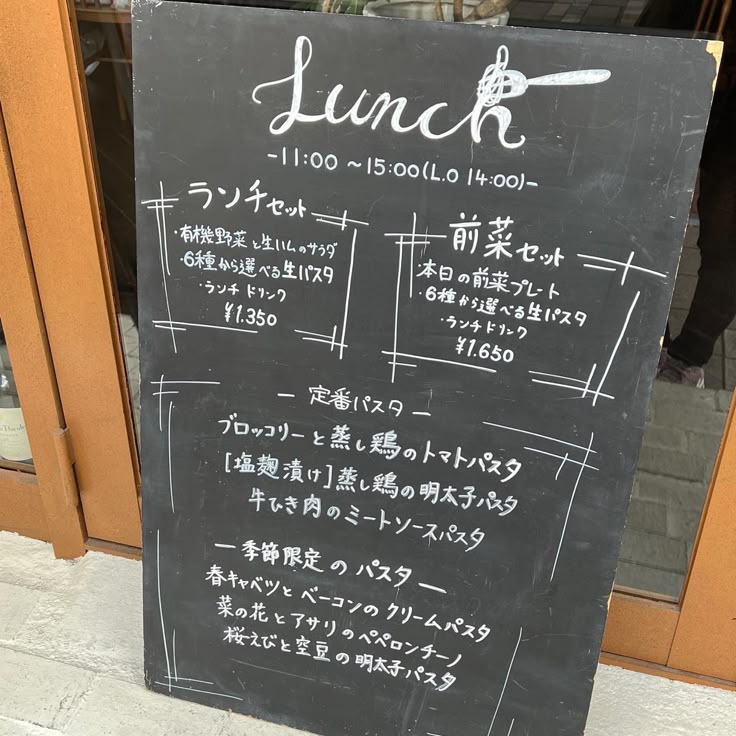 Lunch
-11:00 ~15:00(L.O 14:00)-
ランチセット
・有機野菜と生ハムのサラダ
・6種から選べる生パスタ
・ランチドリンク
¥1.350
前菜セット
・本日の前菜プレート
・6種から選べる生パスタ
・ランチドリンク
¥1.650
― 定番パスタ ―
ブロッコリーと蒸し鶏のトマトパスタ
[塩麹漬け]蒸し鶏の明太子パスタ
牛ひき肉のミートソースパスタ
― 季節限定のパスタ ―
春キャベツとベーコンのクリームパスタ
菜の花とアサリのペペロンチーノ
桜えびと空豆の明太子パスタ